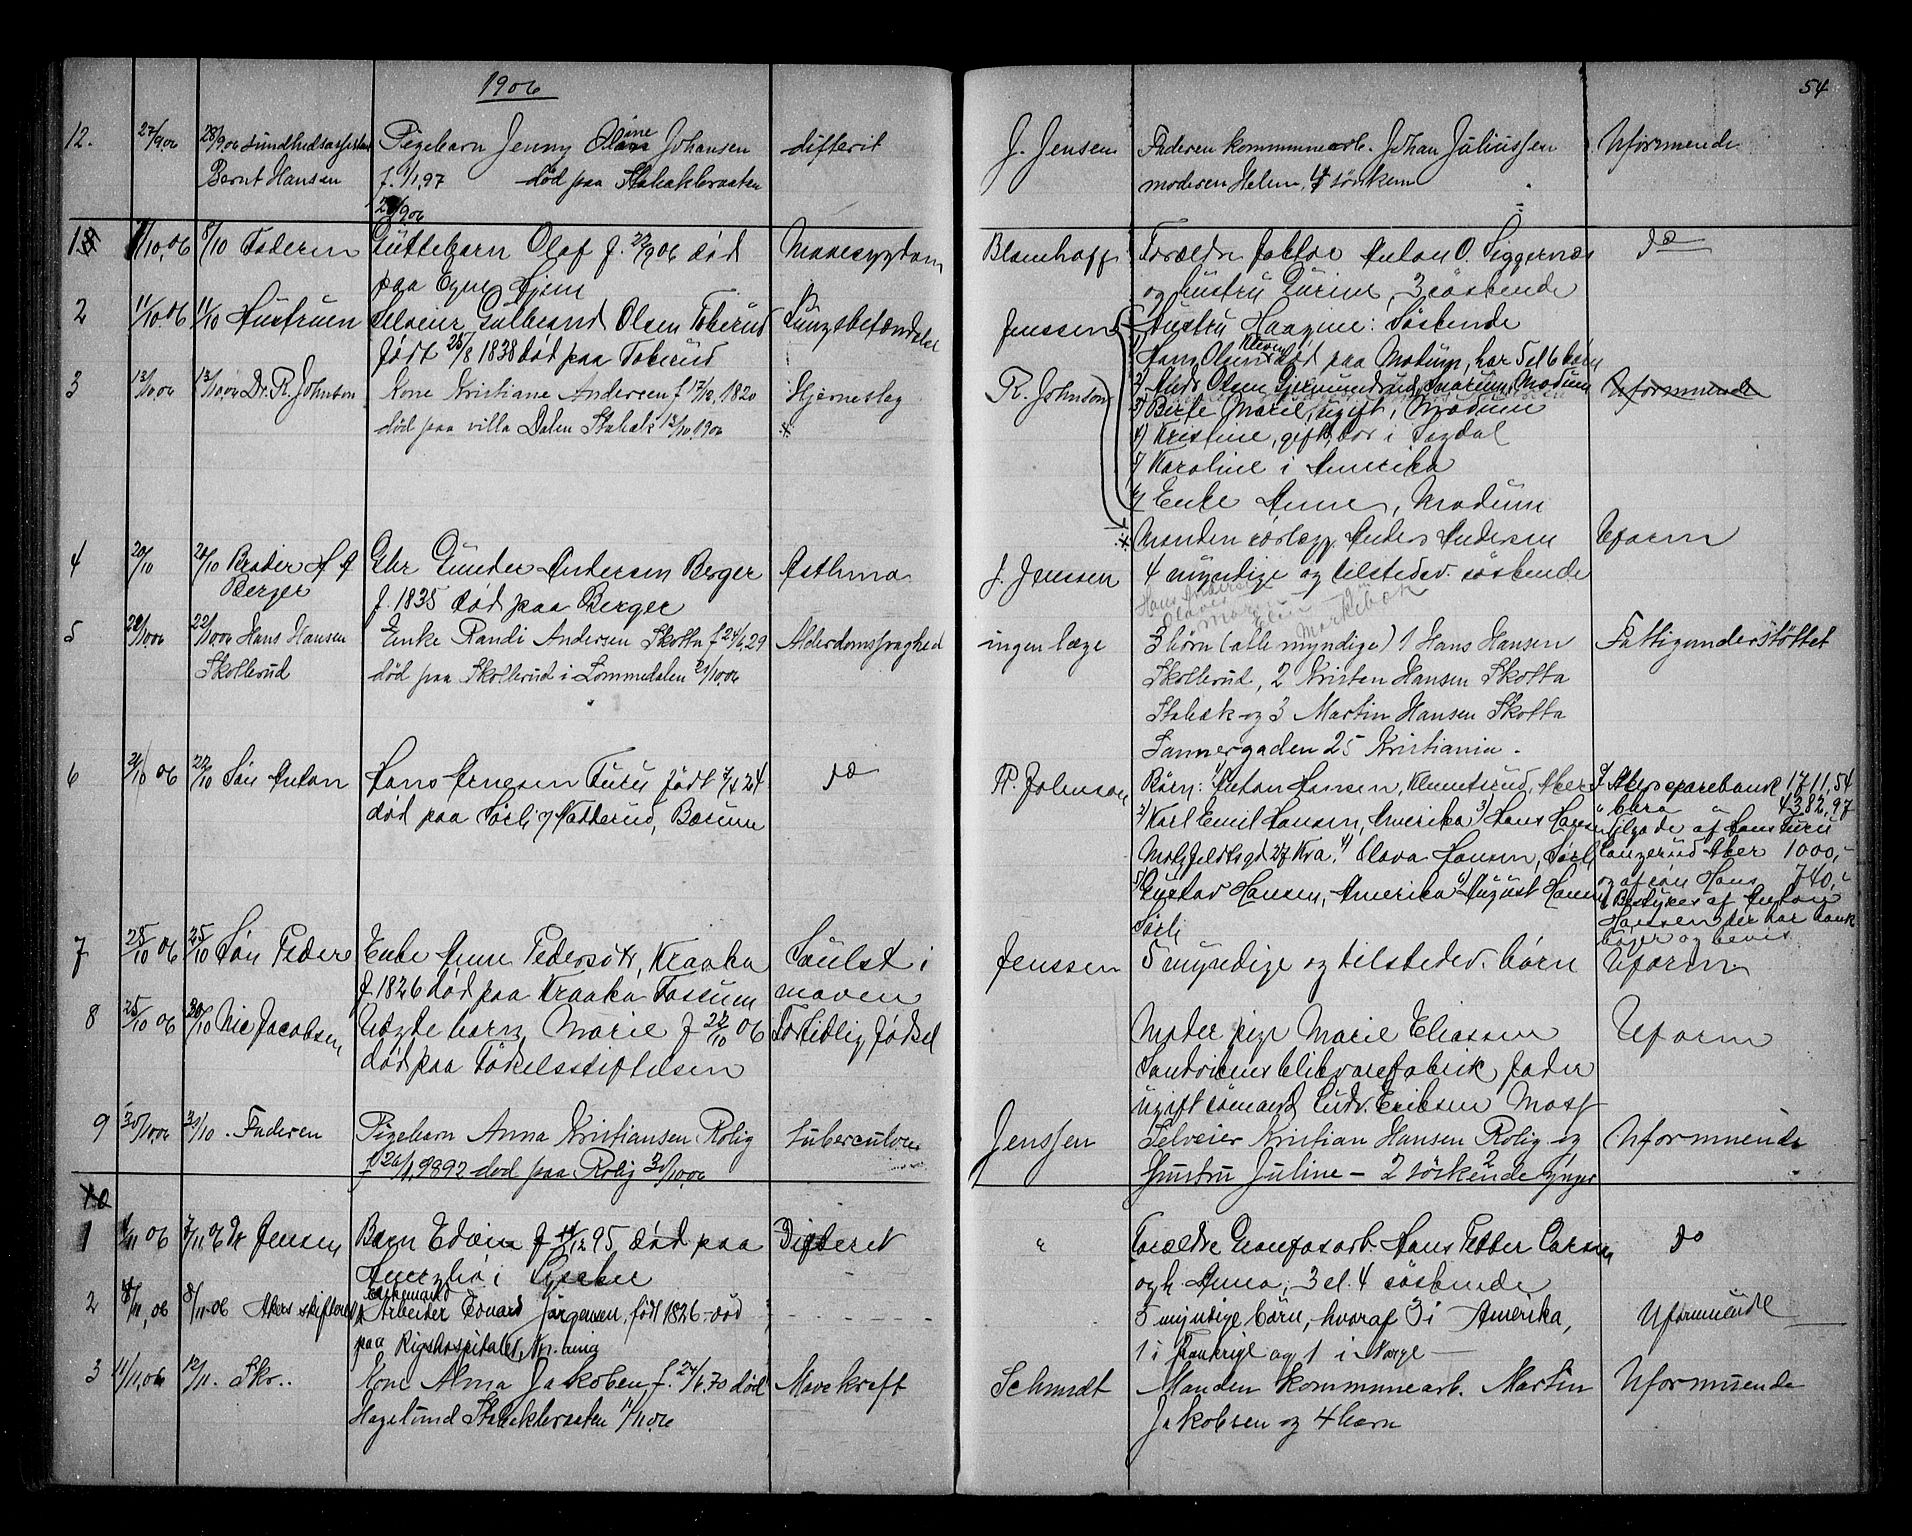 1906
54
12. 27/9.06 28/9.06 Sundhedsassistent Pigebarn Jenny Oline Johansen difterit J. Jensen Faderen kommunearb. Johan Juliussen Uformuende
Bernt Hansen f. 9/1.97 død paa Stabækbraaten moderen Helene, 4 søsken
27/9 06
1 /10.06 8/10 Faderen Guttebarn Olaf f. 22/9 06 død Mavesygdom Blomhoff Forældre faktor Anton O. Siggernæs do
paa Egne Hjem og hustru Gurine, 3 søskende
2 11/10.06 11/10 Hustruen Selveier Gulbrand Olsen Toverud Lungebetændelse Jenssen Hustru Haagine: Søskende
født 25/8 1838 død paa Toverud 1) Hans Olsen Kleven død paa Modum, har 5 el 6 børn
3 13/10.06 13/10.06 Dr. R. Johnson Kone Kristiane Andersen f. 17/12.1820 Hjerneslag R. Johnson 2) Anders Olsen Modum Uformuende
død paa villa Dalen Stabæk 13/10 1906 3) Berte Marie, ugift, Modum
4) Kristine, gift, bor i Sigdal
5) Karoline i Amerika
6) Enke Anne, Modum
Manden rørlegg. Anders Andersen Uform
4 20/10 20/10 Broder A A Gbr Gunder Andersen Berger Asthma J. Jenssen 4 myndige og tilstedev. søskende
Berger f. 1835 død paa Berger
Hans Andersen
5 21/10.06 22/10.06 Hans Hansen Enke Randi Andersen Skotta f 24/6.29 Alderdomssvaghed ingen læge 3 børn (alle myndige) 1 Hans Hansen Fattigunderstøttet
Skollerud død paa Skollerud i Lommedalen 21/10.06 Skollerud, 2 Kristen Hansen Skotta
Stabæk og 3 Martin Hansen Skotta
Sannergaden 25 Kristiania.
6 21/10 06 22/10 Søn Anton Hans Arnesen Furu født 7/4 24 do R. Johnson Børn: 1) Anton Hansen, Klemetsrud, Aker Akers sparebank 1711,54
død paa Sørli af Hatterud, Bærum 2) Karl Emil Hansen, Amerika 3) Hans Hansen 4382,97
Motzfeldtsgd 27 Kra. 4) Olava Hansen, Sørli Aker 1000,-
5) Gustav Hansen, Amerika 6) August Hansen og af søn Hans 740,-
Sørli Bestyres af Anton
Hansen der har bank
bøger og bevis
7 25/10 06 25/10 Søn Peder Enke Anne Pedersdtr, Kraaka Svulst i Jenssen 5 myndige og tilstedev. børn Uform
f 1826 død paa Kraaka Fossum maven
8 25/10 06 30/10 Nic Jacobsen Uægte barn Marie f 22/10 06 For tidlig fødsel Moder pige Marie Eliassen Uform
død paa Fødselsstiftelsen Sandvikens blikvarefabrik fader
ugift sømand Ludv. Eriksen Moss
9 30/10.06 30/10. Faderen Pigebarn Anna Kristiansen Rolig tuberculose Jenssen Selveier Kristian Hansen Rolig og Uformuende
f 26/1 1892 død paa Rolig 30/10.06 Hustru Juline – 2 søskende yngre
10
1 /11 06 7/11.06 Dr Jensen Barn Edvin f 12 95 død paa Difterit " Forældre Granfosarb. Hans Petter Carsen do
i Lysaker og h Anna, 3 el. 4 søskende
2 8/11.06 8/11.06 Akers skifteret Arbeider Edvard Jørgensen, født 1826 – død 5 myndige børn, hvoraf 3 i Amerika, Uformuende
paa Rigshospitalet, Kristiania 1 i Frankrige og 1 i Norge
3 11/11.06 12/11. Skr.. Kone Alma Jakobsen f. 24/6.70 død Mavekræft Schmidt Manden kommunearb. Martin Uformuende
Hagelund Stabækbraaten 11/11.06 Jakobsen og 4 børn